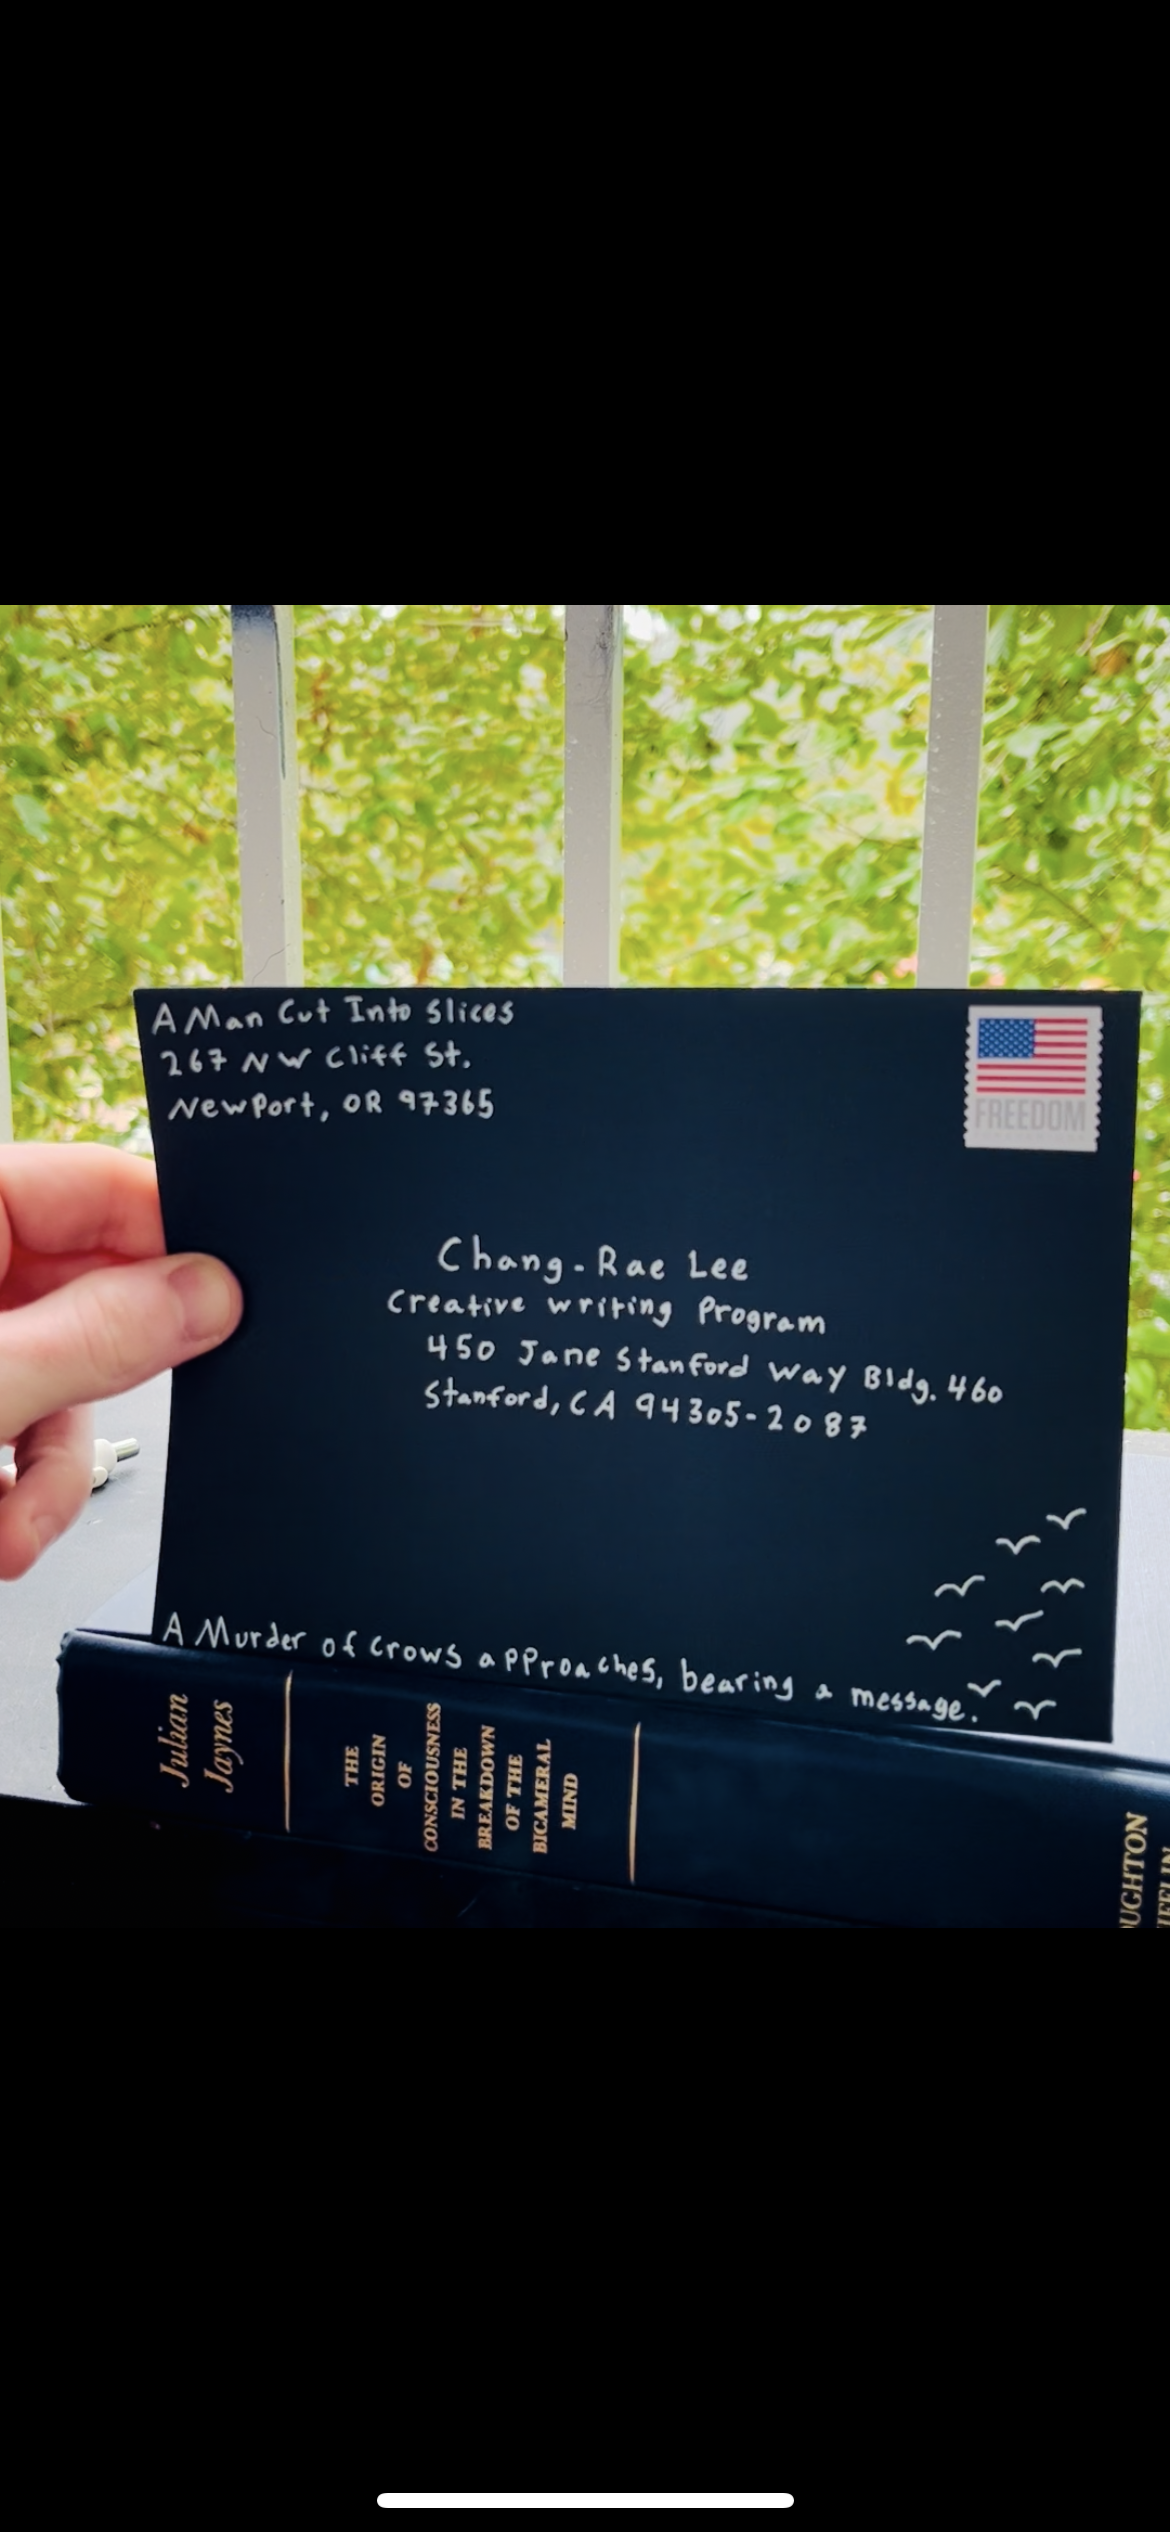 A Man Cut Into Slices
267 NW Cliff St.
Newport, OR 97365
FREEDOM
Chang-Rae Lee
Creative writing Program
450 Jane Stanford Way Bldg. 460
Stanford, CA 94305-2087
A Murder of Crows approaches, bearing a message.
Julian
Jaynes
THE
ORIGIN
OF
CONSCIOUSNESS
IN THE
BREAKDOWN
OF THE
BICAMERAL
MIND